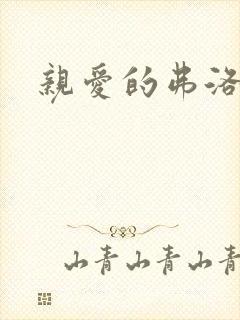 親愛的弗洛
山青山青山青